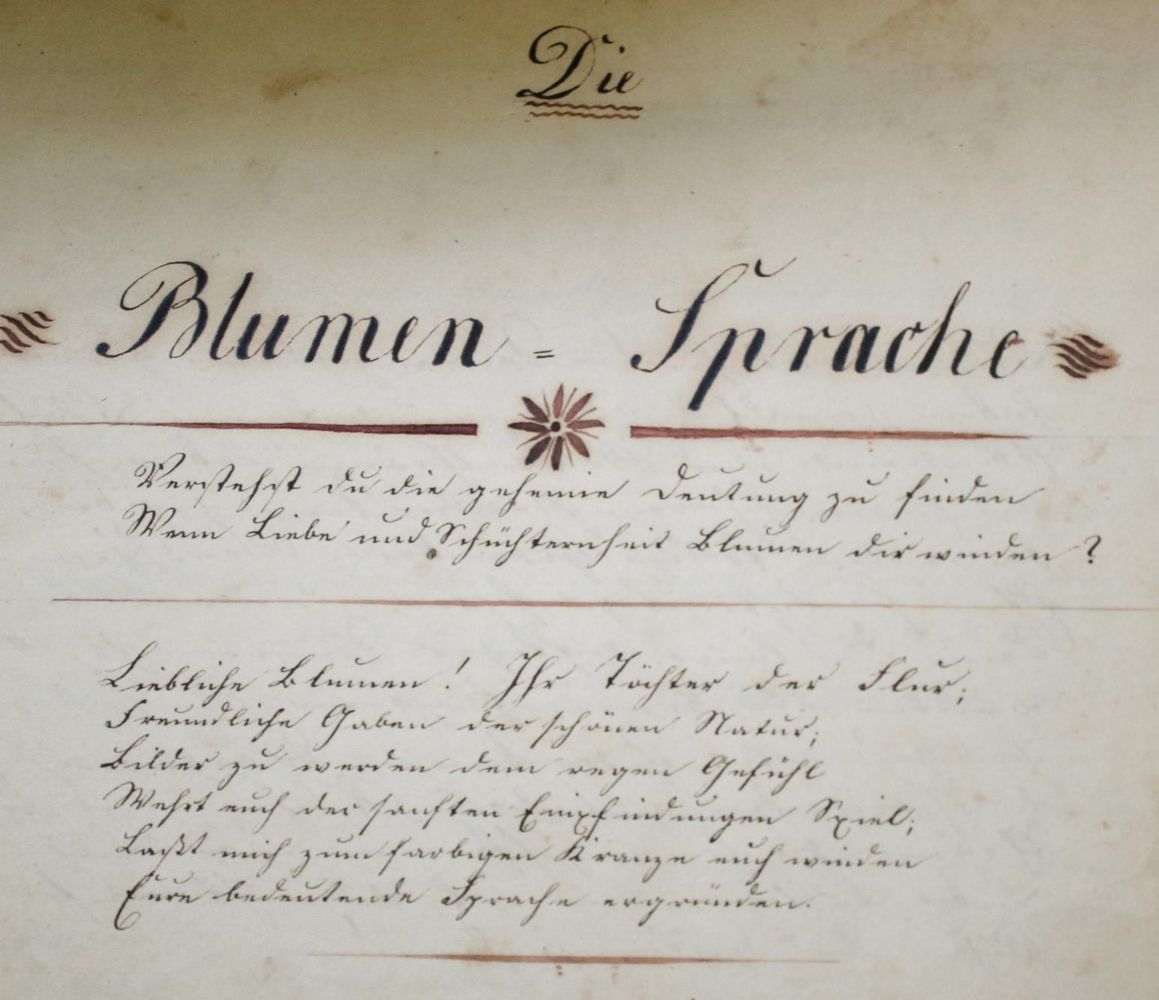 Die
Blumen = Sprache
Verstehst du die geheime Deutung zu finden
Wenn Liebe und Schüchternheit Blumen dir winden?
Liebliche Blumen! Ihr Töchter der Flur;
Freundliche Gaben der schönen Natur;
Bilder zu werden dem regen Gefühl
Wehrt euch der sanften Empfindungen Spiel;
Laßt mich zum farbigen Kranze euch winden
Eure bedeutende Sprache ergründen.